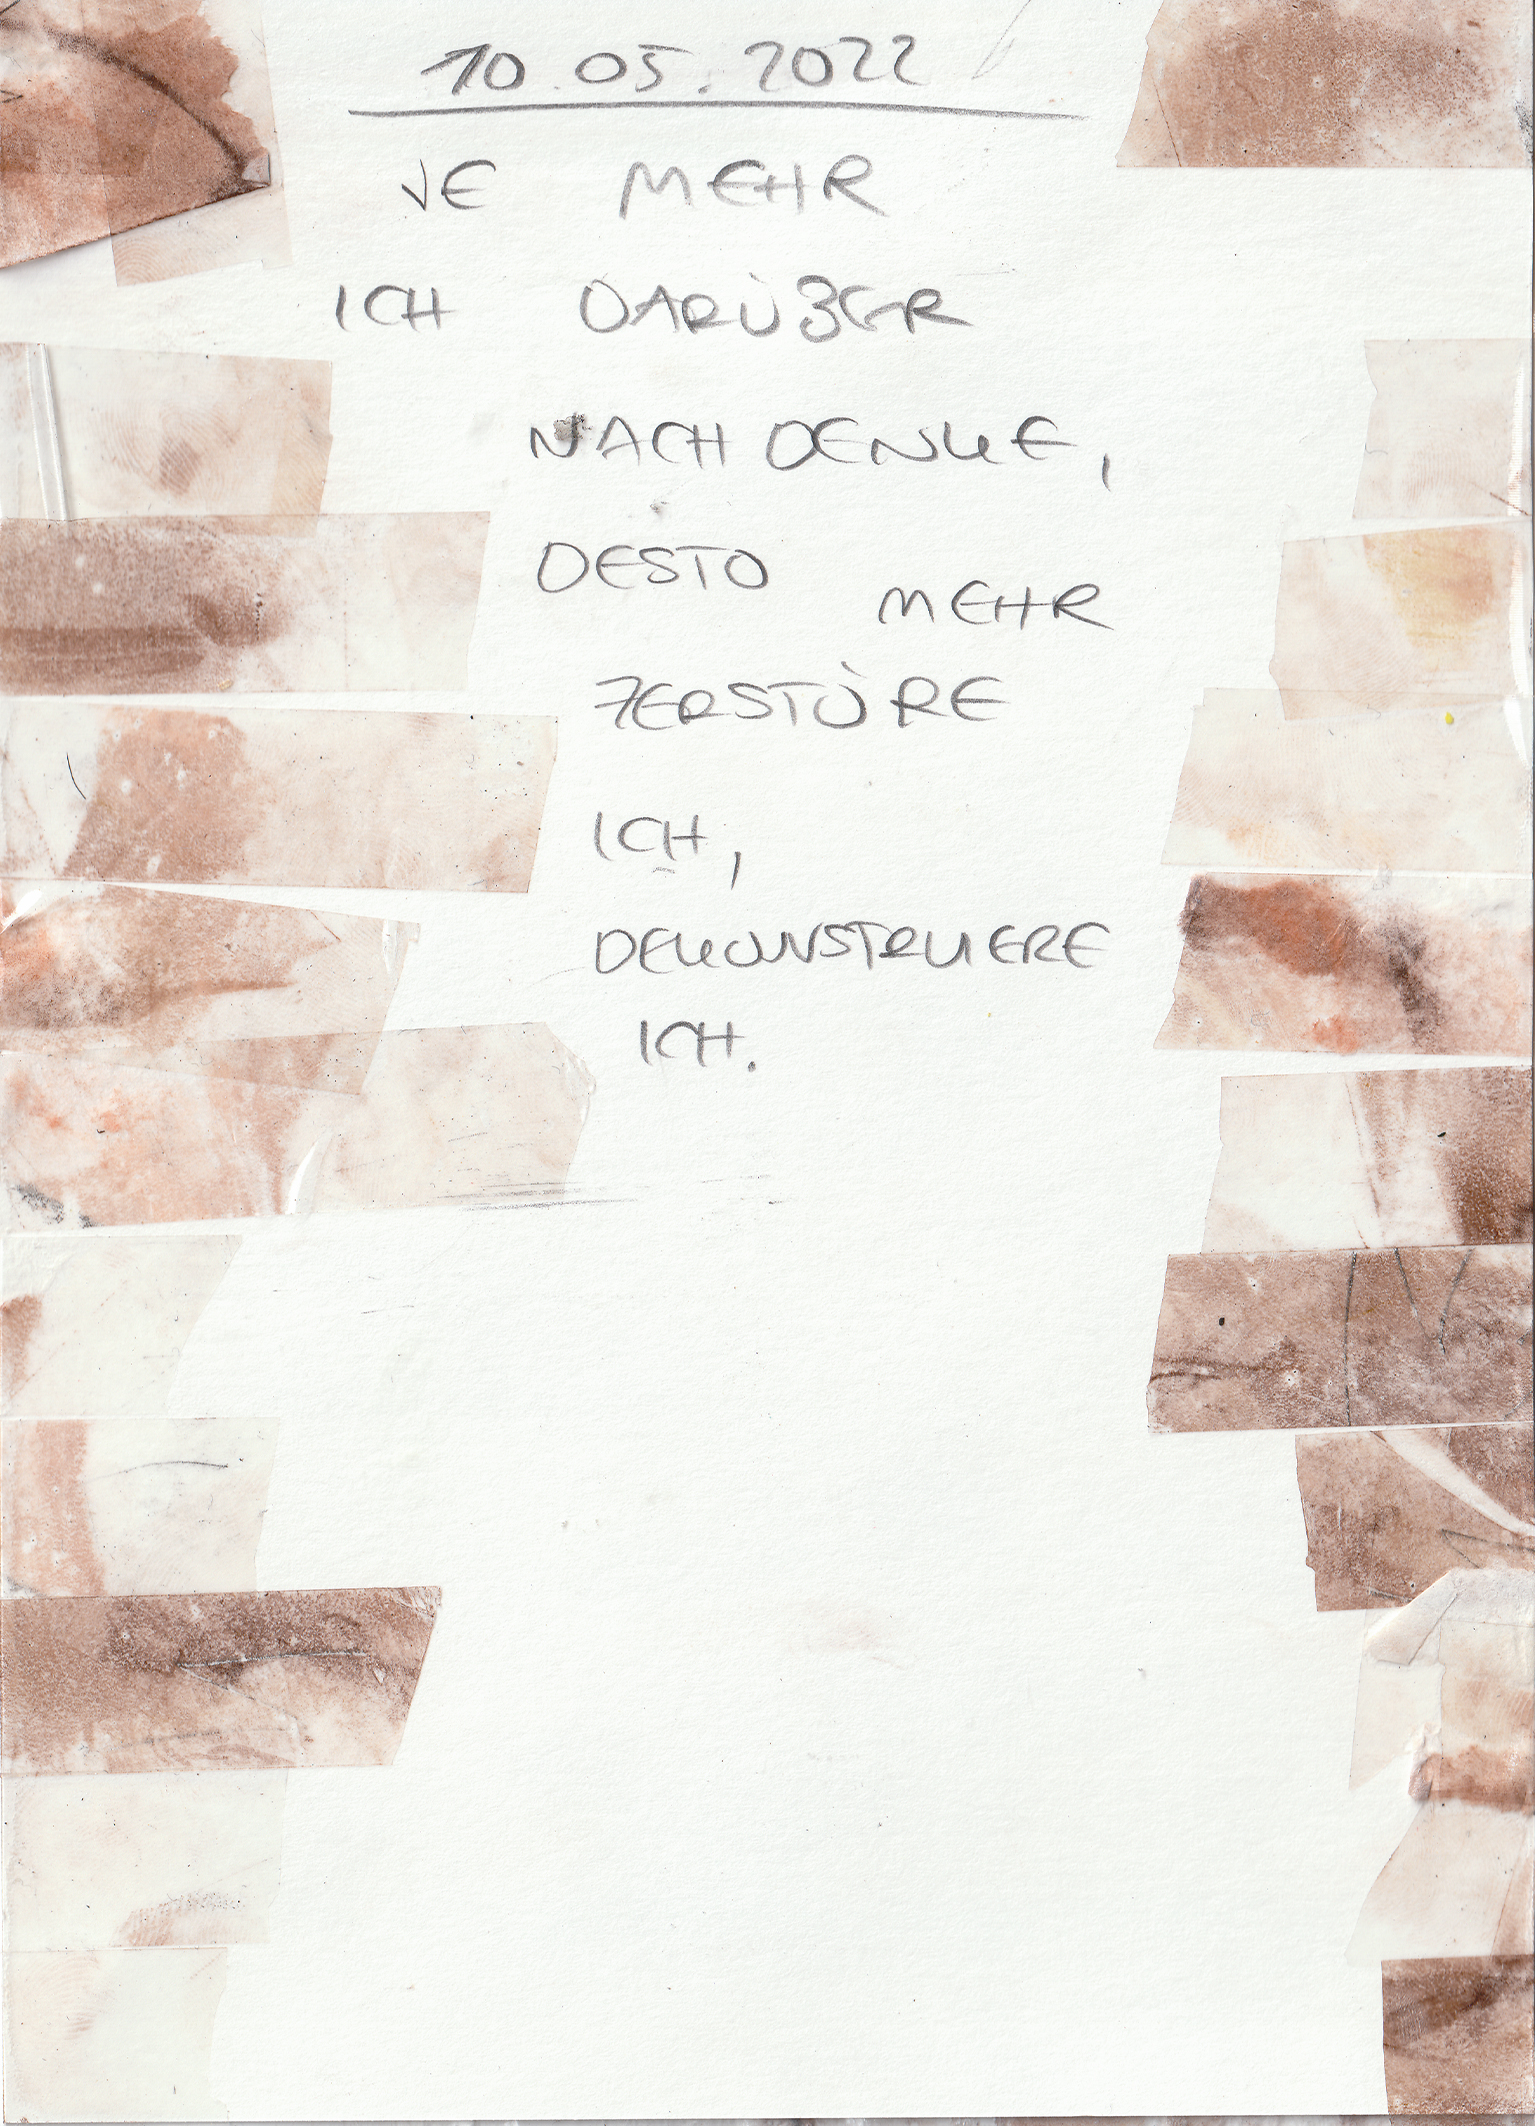 10.05.2022
JE MEHR
ICH DARÜBER
NACHDENKE,
DESTO MEHR
ZERSTÖRE
ICH,
DEKONSTRUIERE
ICH.